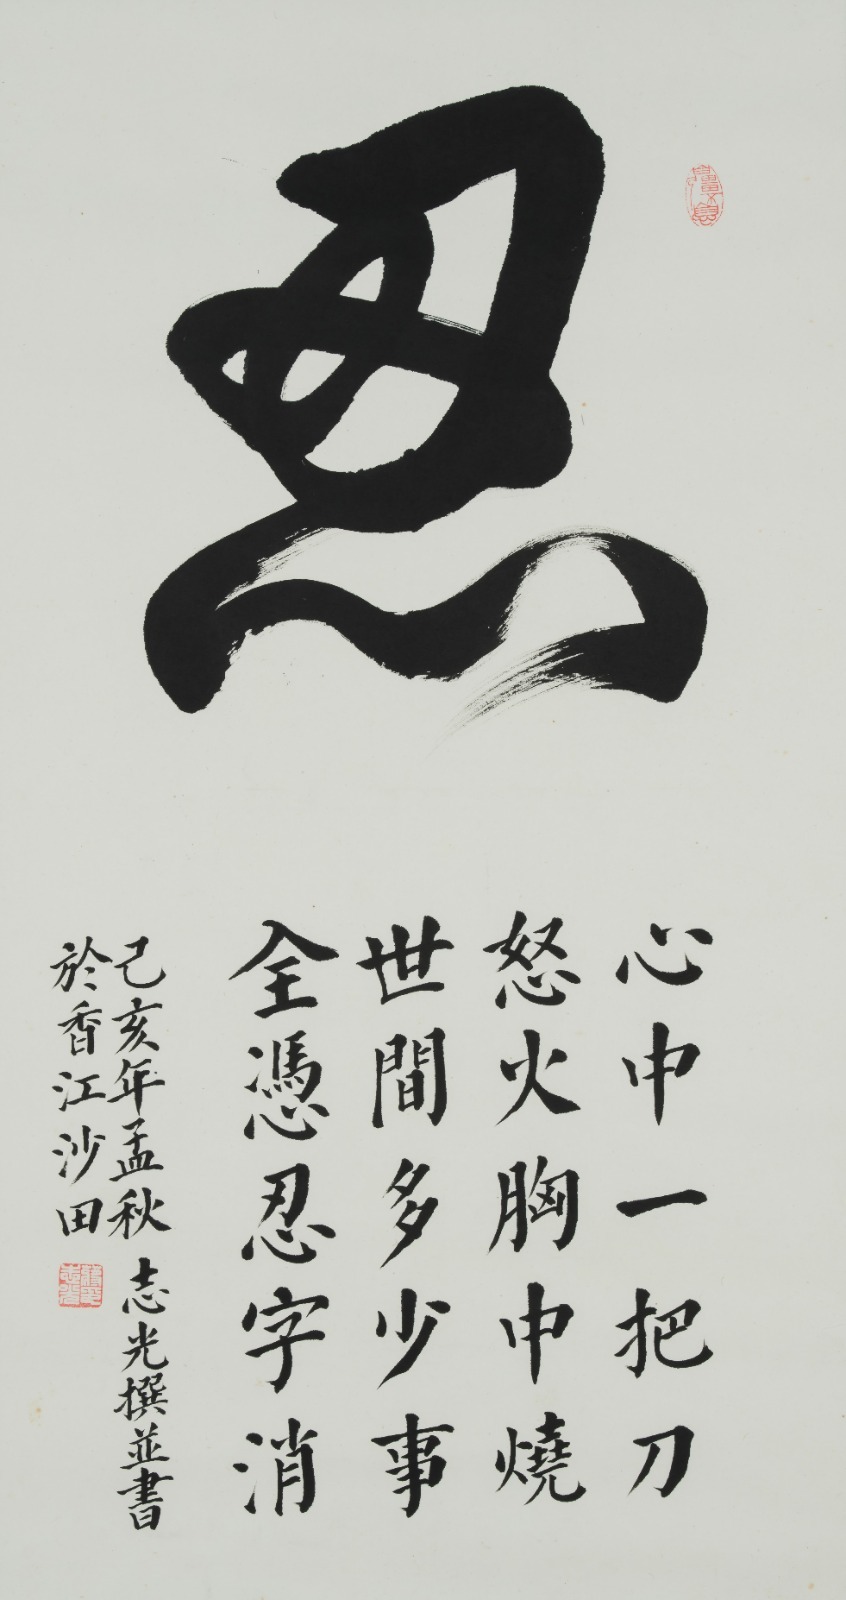 忍
心中一把刀
怒火胸中燒
世間多少事
全憑忍字消
己亥年孟秋 志光撰並書
於香江沙田